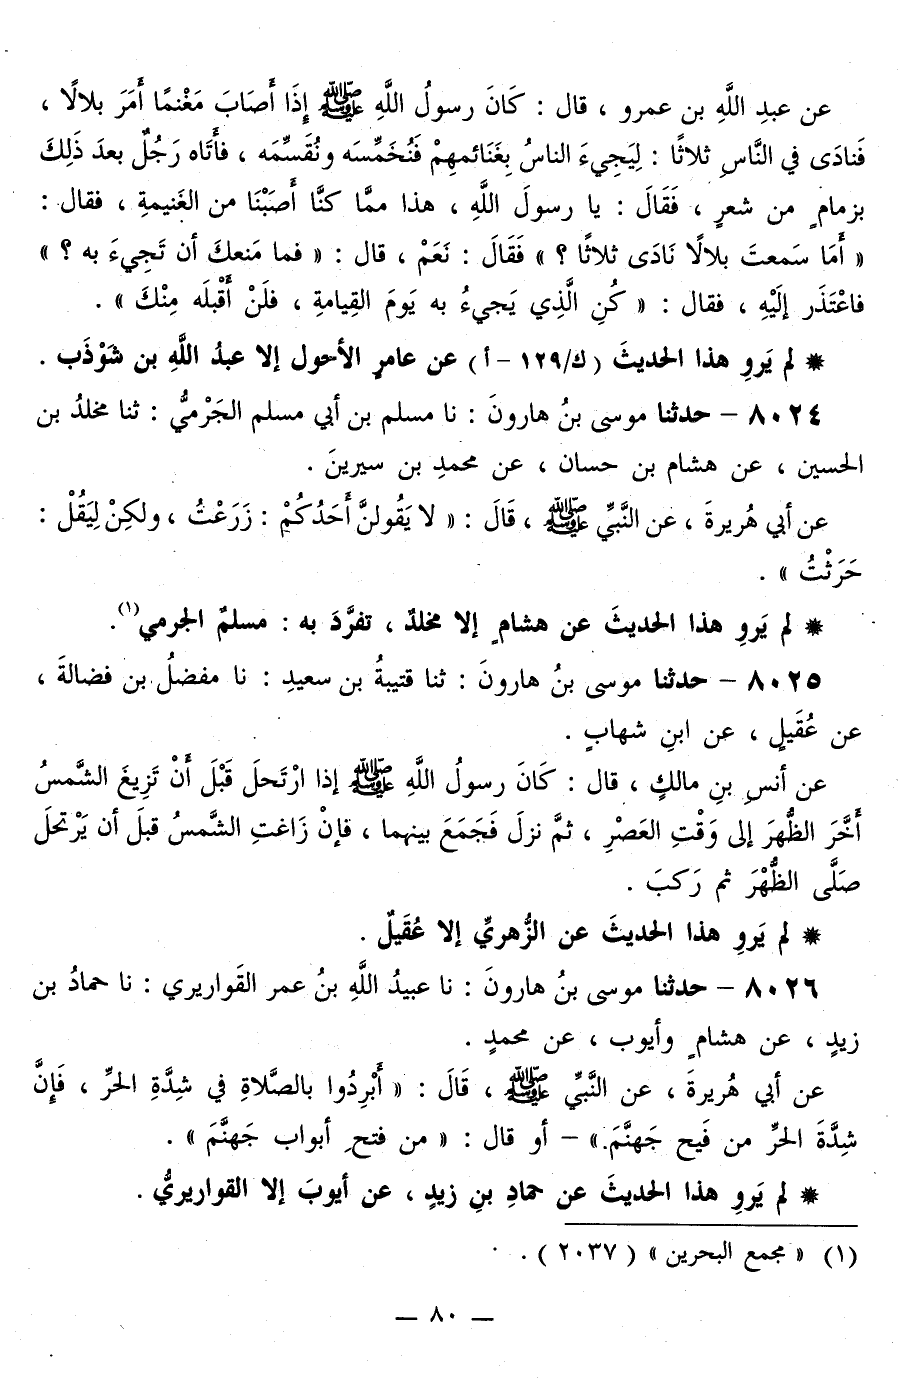 عن عبدِ اللَّهِ بن عمرو ، قال : كَانَ رسولُ اللَّهِ ﷺ إِذَا أَصَابَ مَغْنمًا أَمَرَ بلالًا ،
فَنادَى في النَّاسِ ثلاثًا : لِيَجِيءَ الناسُ بِغَنَائمهِمْ فَنُخَمِّسَه ونُقَسِّمَه ، فأَتَاه رَجُلٌ بعدَ ذَلِكَ
بزمامٍ من شعرٍ ، فَقَالَ : يا رسولَ اللَّهِ ، هذا ممَّا كنَّا أَصَبْنَا من الغَنيمةِ ، فقال :
« أَمَا سَمعتَ بلالًا نَادَى ثلاثًا ؟ » فَقَالَ : نَعَمْ ، قال : « فما مَنعكَ أن تَجِيءَ به ؟ »
فاعْتَذَر إِلَيْهِ ، فقال : « كُنِ الَّذِي يَجيءُ به يَومَ القِيامةِ ، فلَنْ أَقْبلَه مِنْكَ » .
* لم يَروِ هذا الحديثَ (ك/١٢٩ - أ) عن عامرٍ الأحول إلا عبدُ اللَّهِ بن شَوْذَب .
٨٠٢٤ - حدثنا موسى بنُ هارونَ : نا مسلم بن أبي مسلم الجَرْميُّ : ثنا مخلدُ بن
الحسين ، عن هشام بن حسان ، عن محمدِ بن سيرينَ .
عن أبي هُريرةَ ، عن النَّبيِّ ﷺ ، قَالَ : « لا يَقُولنَّ أَحَدُكُمْ : زَرَعْتُ ، ولكِنْ لِيَقُلْ :
حَرَثْتُ » .
* لم يَروِ هذا الحديثَ عن هشامٍ إلا مخلدٌ ، تفرَّدَ به : مسلمٌ الجرمي(١).
٨٠٢٥ - حدثنا موسى بنُ هارونَ : ثنا قتيبةُ بن سعيدِ : نا مفضلُ بن فضالةَ ،
عن عُقَيلٍ ، عن ابنِ شهابٍ .
عن أنسِ بنِ مالكٍ ، قال : كَانَ رسولُ اللَّهِ ﷺ إذا ارْتَحلَ قَبْلَ أَنْ تَزِيغَ الشَّمسُ
أَخَّرَ الظُّهرَ إلى وَقْتِ العَصْرِ ، ثمَّ نزلَ فَجَمَعَ بينهما ، فإنْ زَاغتِ الشَّمسُ قبلَ أن يَرْتحلَ
صَلَّى الظُّهْرَ ثم رَكبَ .
* لم يَروِ هذا الحديثَ عن الزُّهريِّ إلا عُقَيلٌ .
٨٠٢٦ - حدثنا موسى بنُ هارونَ : نا عبيدُ اللَّهِ بنُ عمر القَواريري : نا حمادُ بن
زيدٍ ، عن هشامٍ وأيوب ، عن محمدٍ .
عن أبي هُريرةَ ، عن النَّبيِّ ﷺ ، قَالَ : « أَبْرِدُوا بالصَّلاةِ في شِدَّةِ الحرِّ ، فَإِنَّ
شِدَّةَ الحرِّ من فَيح جَهنَّمَ » - أو قال : « من فتحِ أبواب جَهنَّمَ » .
* لم يَروِ هذا الحديثَ عن حمادِ بنِ زيدٍ ، عن أيوبَ إلا القواريريُّ .
(١) « مجمع البحرين » ( ٢٠٣٧ ) .
— ٨٠ —